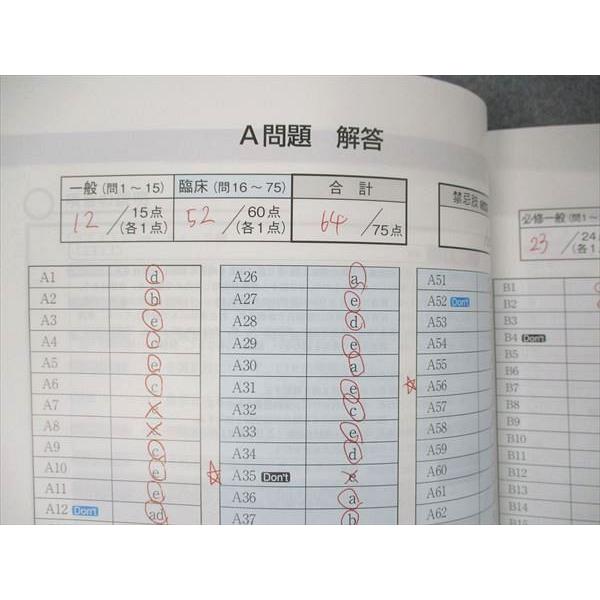 A問題 解答
一般(問1〜15) 臨床(問16〜75) 合計
12/15点(各1点) 52/60点(各1点) 64/75点
必修一般(問1〜
23/24
(各1
A1 d
A2 b
A3 e
A4
A5 e
A6 c
A7
A8
A9 c
A10 e
A11 e
A12 Don't ad
A26 a
A27 e
A28 d
A29 e
A30 a
A31 e
A32 c
A33 e
A34 d
A35 Don't
A36 a
A37 b
A51
A52 Don't
A53
A54
A55
A56
A57
A58
A59
A60
A61
A62
B1
B2
B3
B4 Don't
B5
B6
B7
B8
B9
B10
B11
B12
B13
B14